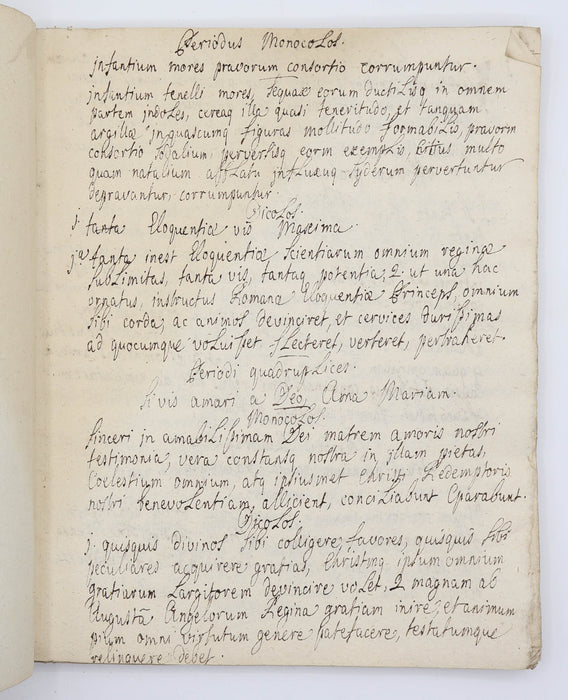 Periodus Monocolos.
jnfantium mores pravorum consortio corrumpuntur.
jnfantium tenelli mores, sequax eorum ductilisq in omnem
partem jndoles, cereaq illa quasi teneritudo, et tanquam
argillæ jn quascumq figuras mollitudo formabilis, pravorm
consortio sodalium, perversisq eorm exemplis, citius multo
quam natalium afflatu jnfluxuq syderum pervertuntur
degravantur, corrumpuntur.
Dicolos.
j. tanta Eloquentiæ vis Maxima.
j.a tanta inest Eloquentiæ scientiarum omnium reginæ
sublimitas, tanta vis, tantaq potentia, 2 ut una hac
ornatus, instructus Romanæ Eloquentiæ Princeps, omnium
sibi corda, ac animos devinciret, et cervices durissimas
ad quocumque voluisset flecteret, verteret, pertraheret.
Periodi quadruplices.
si vis amari a Deo Ama Mariam
Monocolos.
sinceri jn amabilissimam Dei matrem amoris nostri
testimonia, vera constansq nostra in jllam pietas,
Coelestium omnium, atq ipsiusmet Christi Redemptoris
nostri benevolentiam, allicient, conciliabunt Cparabunt.
Dicolos.
j. quisquis divinos sibi colligere favores, quisquis sibi
peculiares acquirere gratias, Christmq ipsum omnium
gratiarum Largitorem devincire volet, 2 magnam ab
Augustâ Angelorum Regina gratiam inire, et animum
pium omni virtutum genere patefacere, testatumque
relinquere debet.